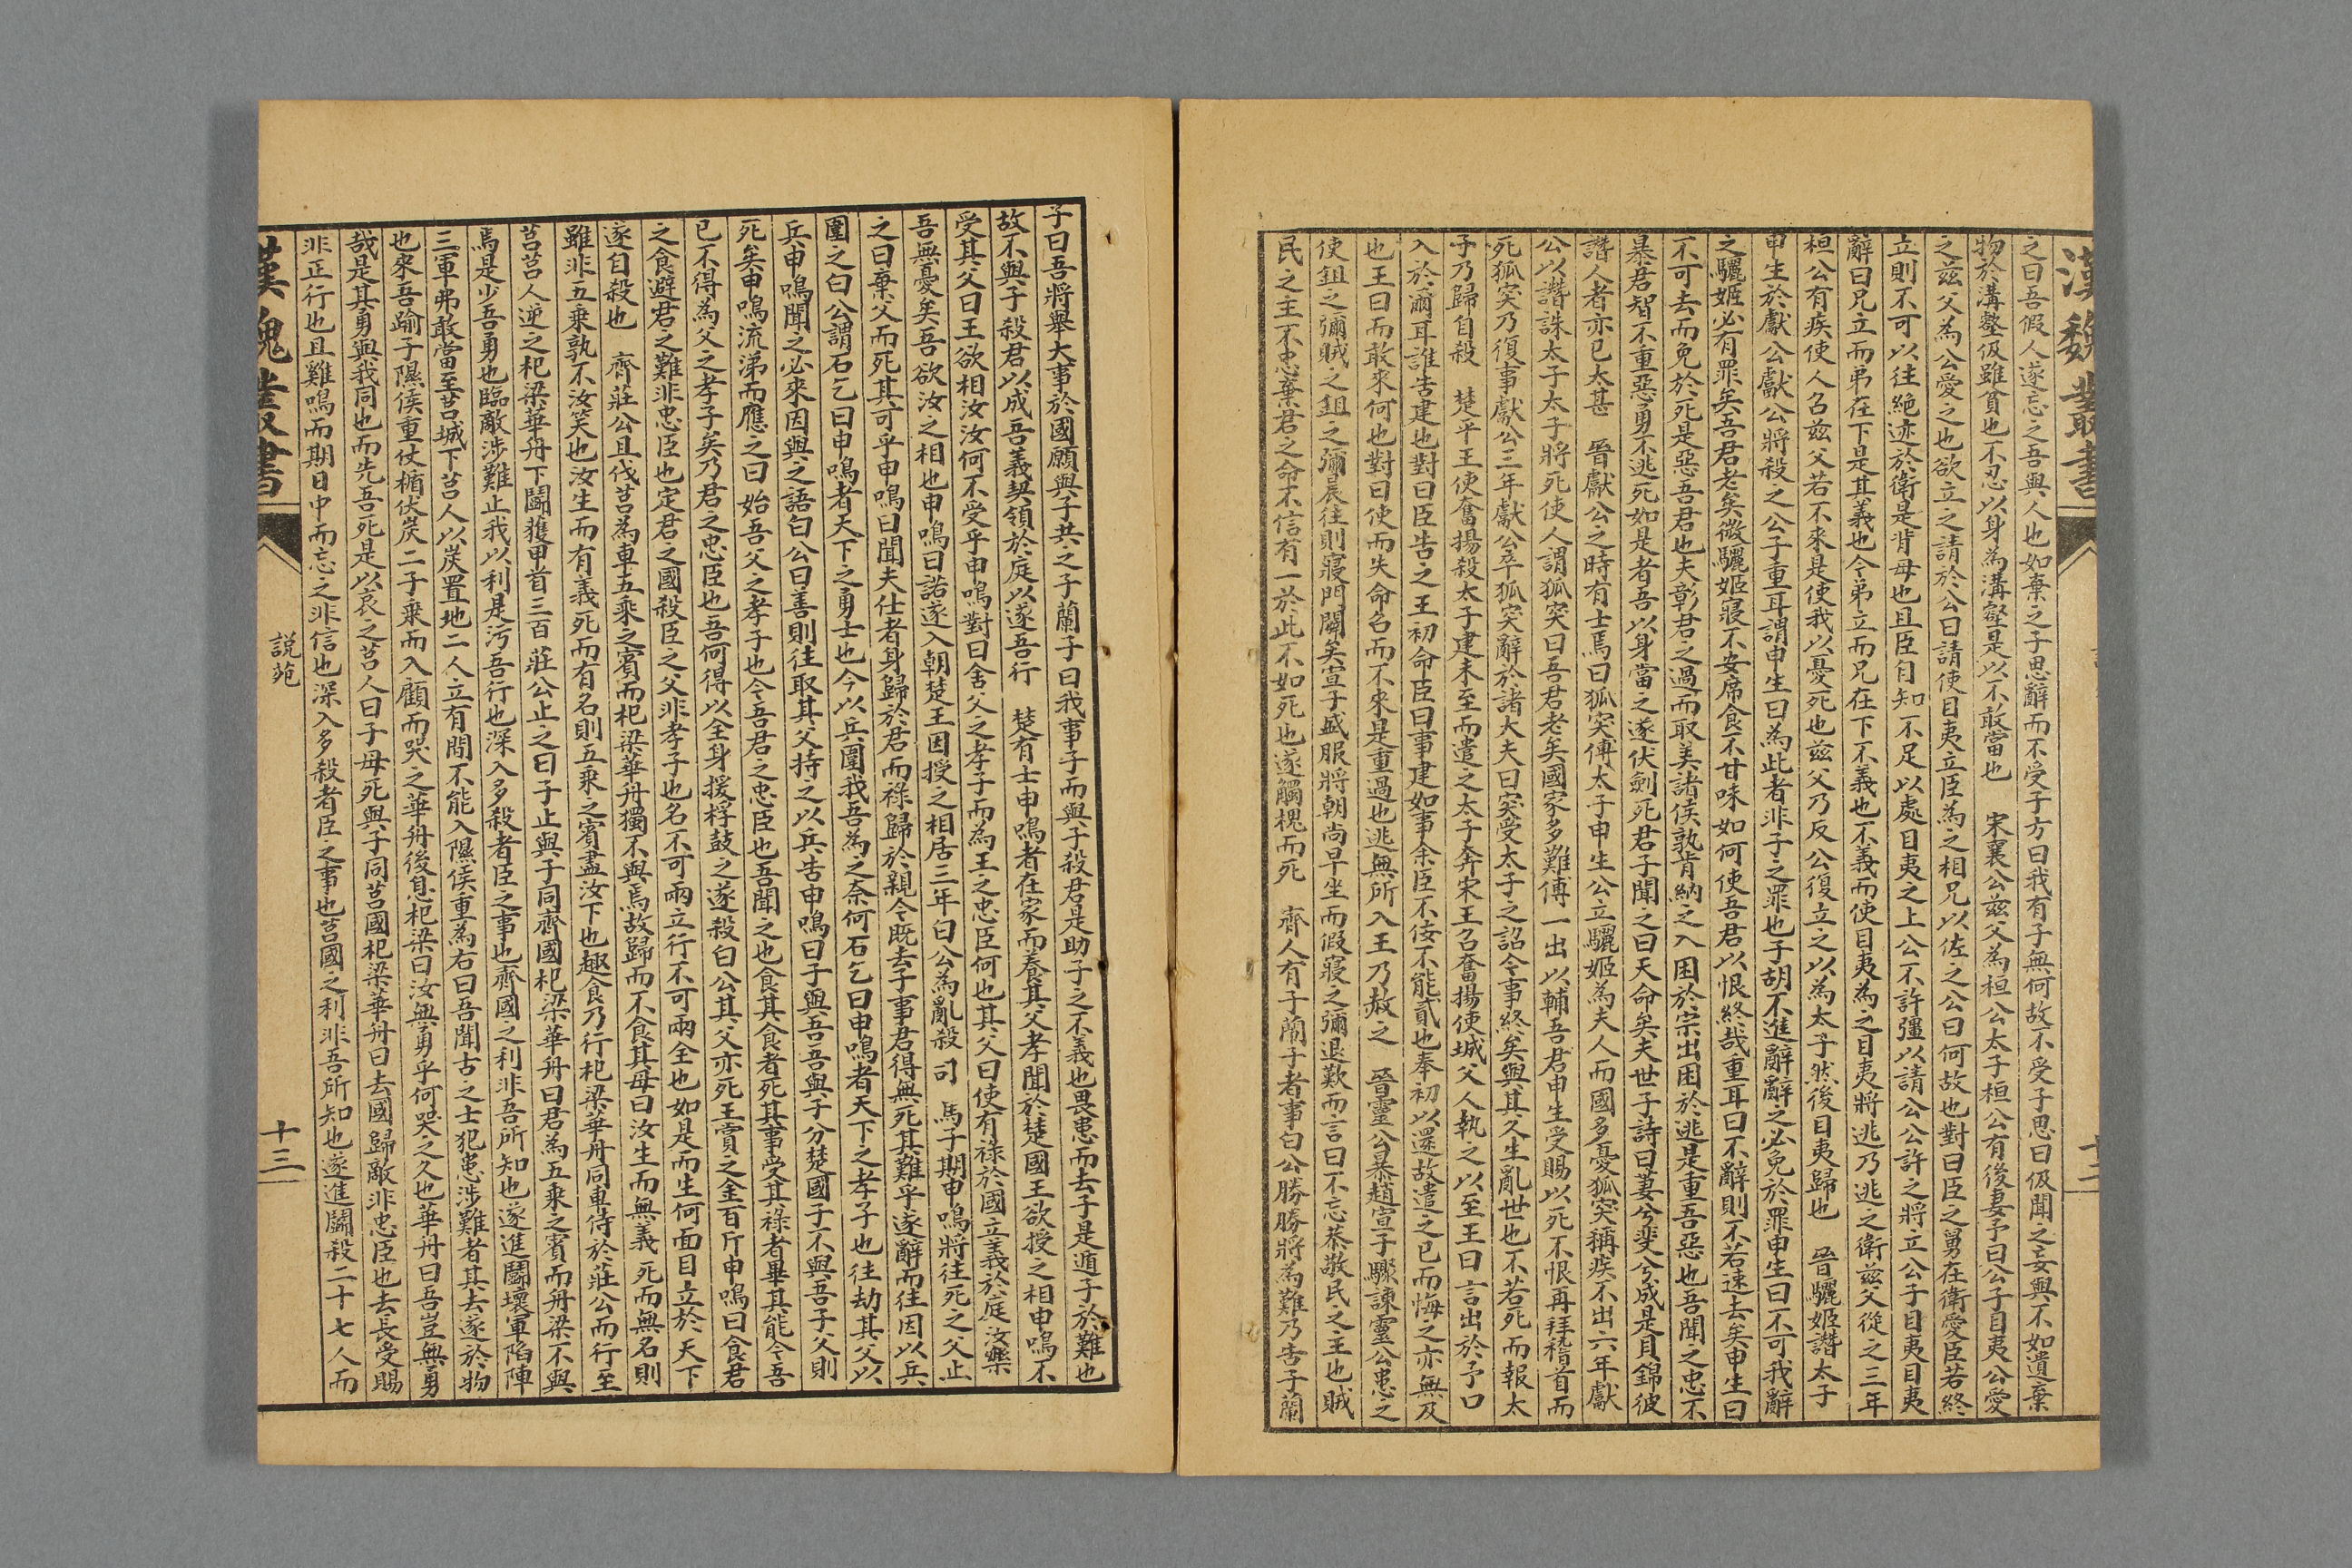 漢魏叢書
之曰吾假人遂忘之吾與人也如棄之子思辭而不受子方曰我有子無何故不受子思曰伋聞之妄與不如遺棄
物於溝壑伋雖貧也不忍以身為溝壑是以不敢當也　宋襄公茲父為桓公太子桓公有後妻子曰公子目夷公愛
之茲父為公愛之也欲立之請於公曰請使目夷立臣為之相兄以佐之公曰何故也對曰臣之舅在衛愛臣若終
立則不可以往絶迹於衛是背母也且臣自知不足以處目夷之上公不許彊以請公公許之將立公子目夷目夷
辭曰兄立而弟在下是其義也今弟立而兄在下不義也不義而使目夷為之目夷將逃乃逃之衛茲父從之三年
桓公有疾使人召茲父若不來是使我以憂死也茲父乃反公復立之以為太子然後目夷歸也　晉驪姬譖太子
申生於獻公獻公將殺之公子重耳謂申生曰為此者非子之罪也子胡不進辭辭之必免於罪申生曰不可我辭
之驪姬必有罪矣吾君老矣微驪姬寢不安席食不甘味如何使吾君以恨終哉重耳曰不辭則不若速去矣申生曰
不可去而免於死是惡吾君也夫彰君之過而取美諸侯孰肯納之入困於宗出困於逃是重吾惡也吾聞之忠不
暴君智不重惡勇不逃死如是者吾以身當之遂伏劍死君子聞之曰天命矣夫世子詩曰萋兮斐兮成是貝錦彼
譖人者亦已太甚　晉獻公之時有士焉曰狐突傅太子申生公立驪姬為夫人而國多憂狐突稱疾不出六年獻
公以譖誅太子太子將死使人謂狐突曰吾君老矣國家多難傅一出以輔吾君申生受賜以死不恨再拜稽首而
死狐突乃復事獻公三年獻公卒狐突辭於諸大夫曰突受太子之詔令事終矣與其久生亂世也不若死而報太
子乃歸自殺　楚平王使奮揚殺太子建未至而遣之太子奔宋王召奮揚使城父人執之以至王曰言出於予口
入於爾耳誰告建也對曰臣告之王初命臣曰事建如事余臣不佞不能貳也奉初以還故遣之已而悔之亦無及
也王曰而敢來何也對曰使而失命召而不來是重過也逃無所入王乃赦之　晉靈公暴趙宣子驟諫靈公患之
使鉏之彌賊之鉏之彌晨往則寢門闢矣宣子盛服將朝尚早坐而假寢之彌退歎而言曰不忘恭敬民之主也賊
民之主不忠棄君之命不信有一於此不如死也遂觸槐而死　齊人有子蘭子者事白公勝勝將為難乃告子蘭
子曰吾將舉大事於國願與子共之子蘭子曰我事子而與子殺君是助子之不義也畏患而去子是遁子於難也
故不與子殺君以成吾義契領於庭以遂吾行　楚有士申鳴者在家而養其父孝聞於楚國王欲授之相申鳴不
受其父曰王欲相汝汝何不受乎申鳴對曰舍父之孝子而為王之忠臣何也其父曰使有祿於國立義於庭汝樂
吾無憂矣吾欲汝之相也申鳴曰諾遂入朝楚王因授之相居三年白公為亂殺司　馬子期申鳴將往死之父止
之曰棄父而死其可乎申鳴曰聞夫仕者身歸於君而祿歸於親今既去子事君得無死其難乎遂辭而往因以兵
圍之白公謂石乞曰申鳴者天下之勇士也今以兵圍我吾為之奈何石乞曰申鳴者天下之孝子也往劫其父以
兵申鳴聞之必來因與之語白公曰善則往取其父持之以兵告申鳴曰子與吾吾與子分楚國子不與吾子父則
死矣申鳴流涕而應之曰始吾父之孝子也今吾君之忠臣也吾聞之也食其食者死其事受其祿者畢其能今吾
已不得為父之孝子矣乃君之忠臣也吾何得以全身援桴鼓之遂殺白公其父亦死王賞之金百斤申鳴曰食君
之食避君之難非忠臣也定君之國殺臣之父非孝子也名不可兩立行不可兩全也如是而生何面目立於天下
遂自殺也　齊莊公且伐莒為車五乘之賓而杞梁華舟獨不與焉故歸而不食其母曰汝生而無義死而無名則
雖非五乘孰不汝笑也汝生而有義死而有名則五乘之賓盡汝下也趣食乃行杞梁華舟同車侍於莊公而行至
莒莒人逆之杞梁華舟下鬭獲甲首三百莊公止之曰子止與子同齊國杞梁華舟曰君為五乘之賓而舟梁不與
焉是少吾勇也臨敵涉難止我以利是污吾行也深入多殺者臣之事也齊國之利非吾所知也遂進鬭壞軍陷陣
三軍弗敢當至莒城下莒人以炭置地二人立有間不能入隰侯重為右曰吾聞古之士犯患涉難者其去遂於物
也來吾踰子隰侯重仗楯伏炭二子乘而入顧而哭之華舟後息杞梁曰汝無勇乎何哭之久也華舟曰吾豈無勇
哉是其勇與我同也而先吾死是以哀之莒人曰子毋死與子同莒國杞梁華舟曰去國歸敵非忠臣也去長受賜
非正行也且雞鳴而期日中而忘之非信也深入多殺者臣之事也莒國之利非吾所知也遂進鬭殺二十七人而
漢魏叢書
說苑
十三